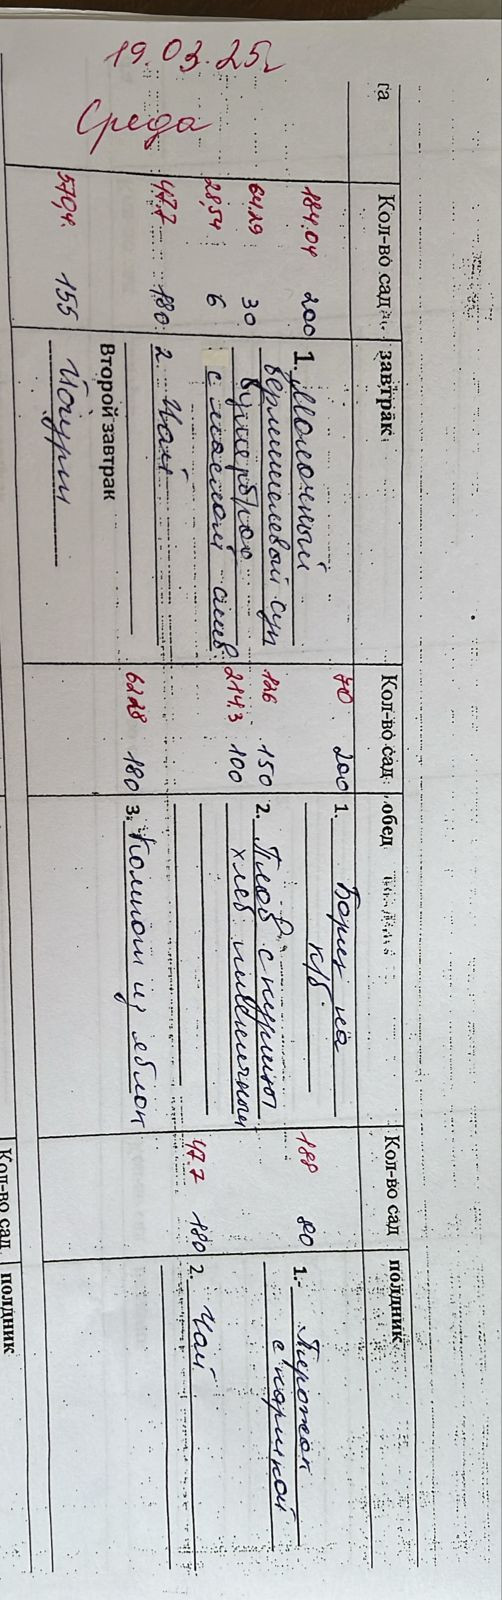 19.03.25г
Среда
та
Кол-во сад
завтрак
184.04 200 1. Молочный
вермишелевый суп
64.29 30 бутерброд
28,54 6 с маслом слив.
47.7 180. 2. Чай
Второй завтрак
155 Йогурт
Кол-во сад
обед
70 200 1. Борщ на
к/б
126 150 2. Плов с курицей
214.3 100 хлеб пшеничный
62.28 180 3. Компот из яблок
Кол-во сад
полдник
188 80 1.- Пирожок
с
47.7 180 2. Чай
Кол-во сад
полдник